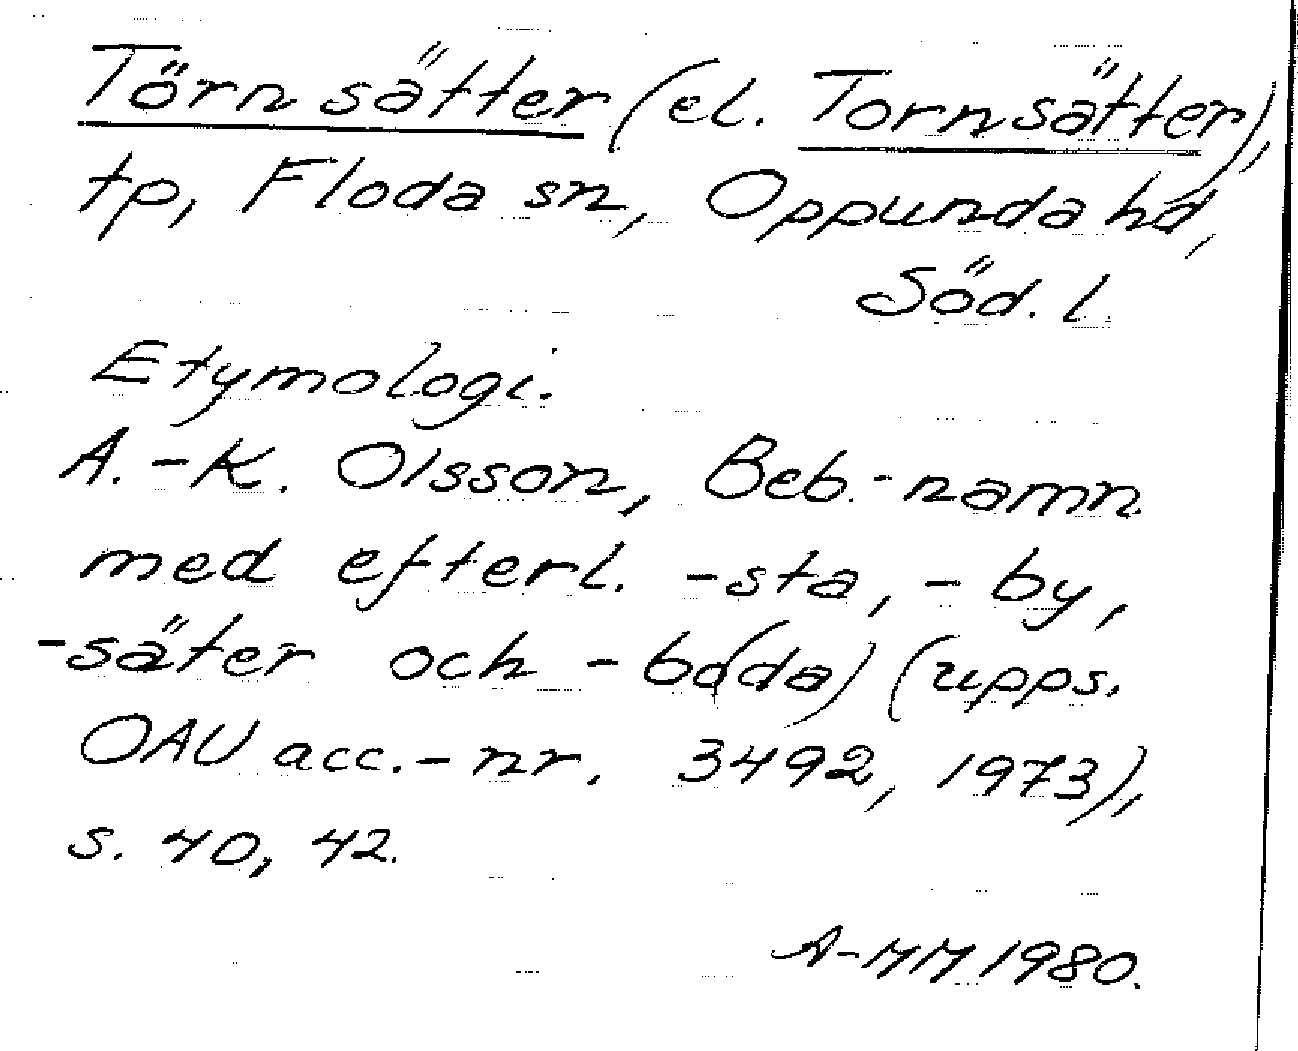 Törnsätter (el. Tornsätter),
tp, Floda sn, Oppunda hd,
Söd. l.
Etymologi.
A.-K. Olsson, Beb.-namn
med efterl. -sta, -by,
-säter och -bo(da) (upps.
OAU acc.-nr. 3492, 1973),
s. 40, 42.
A-MM 1980.